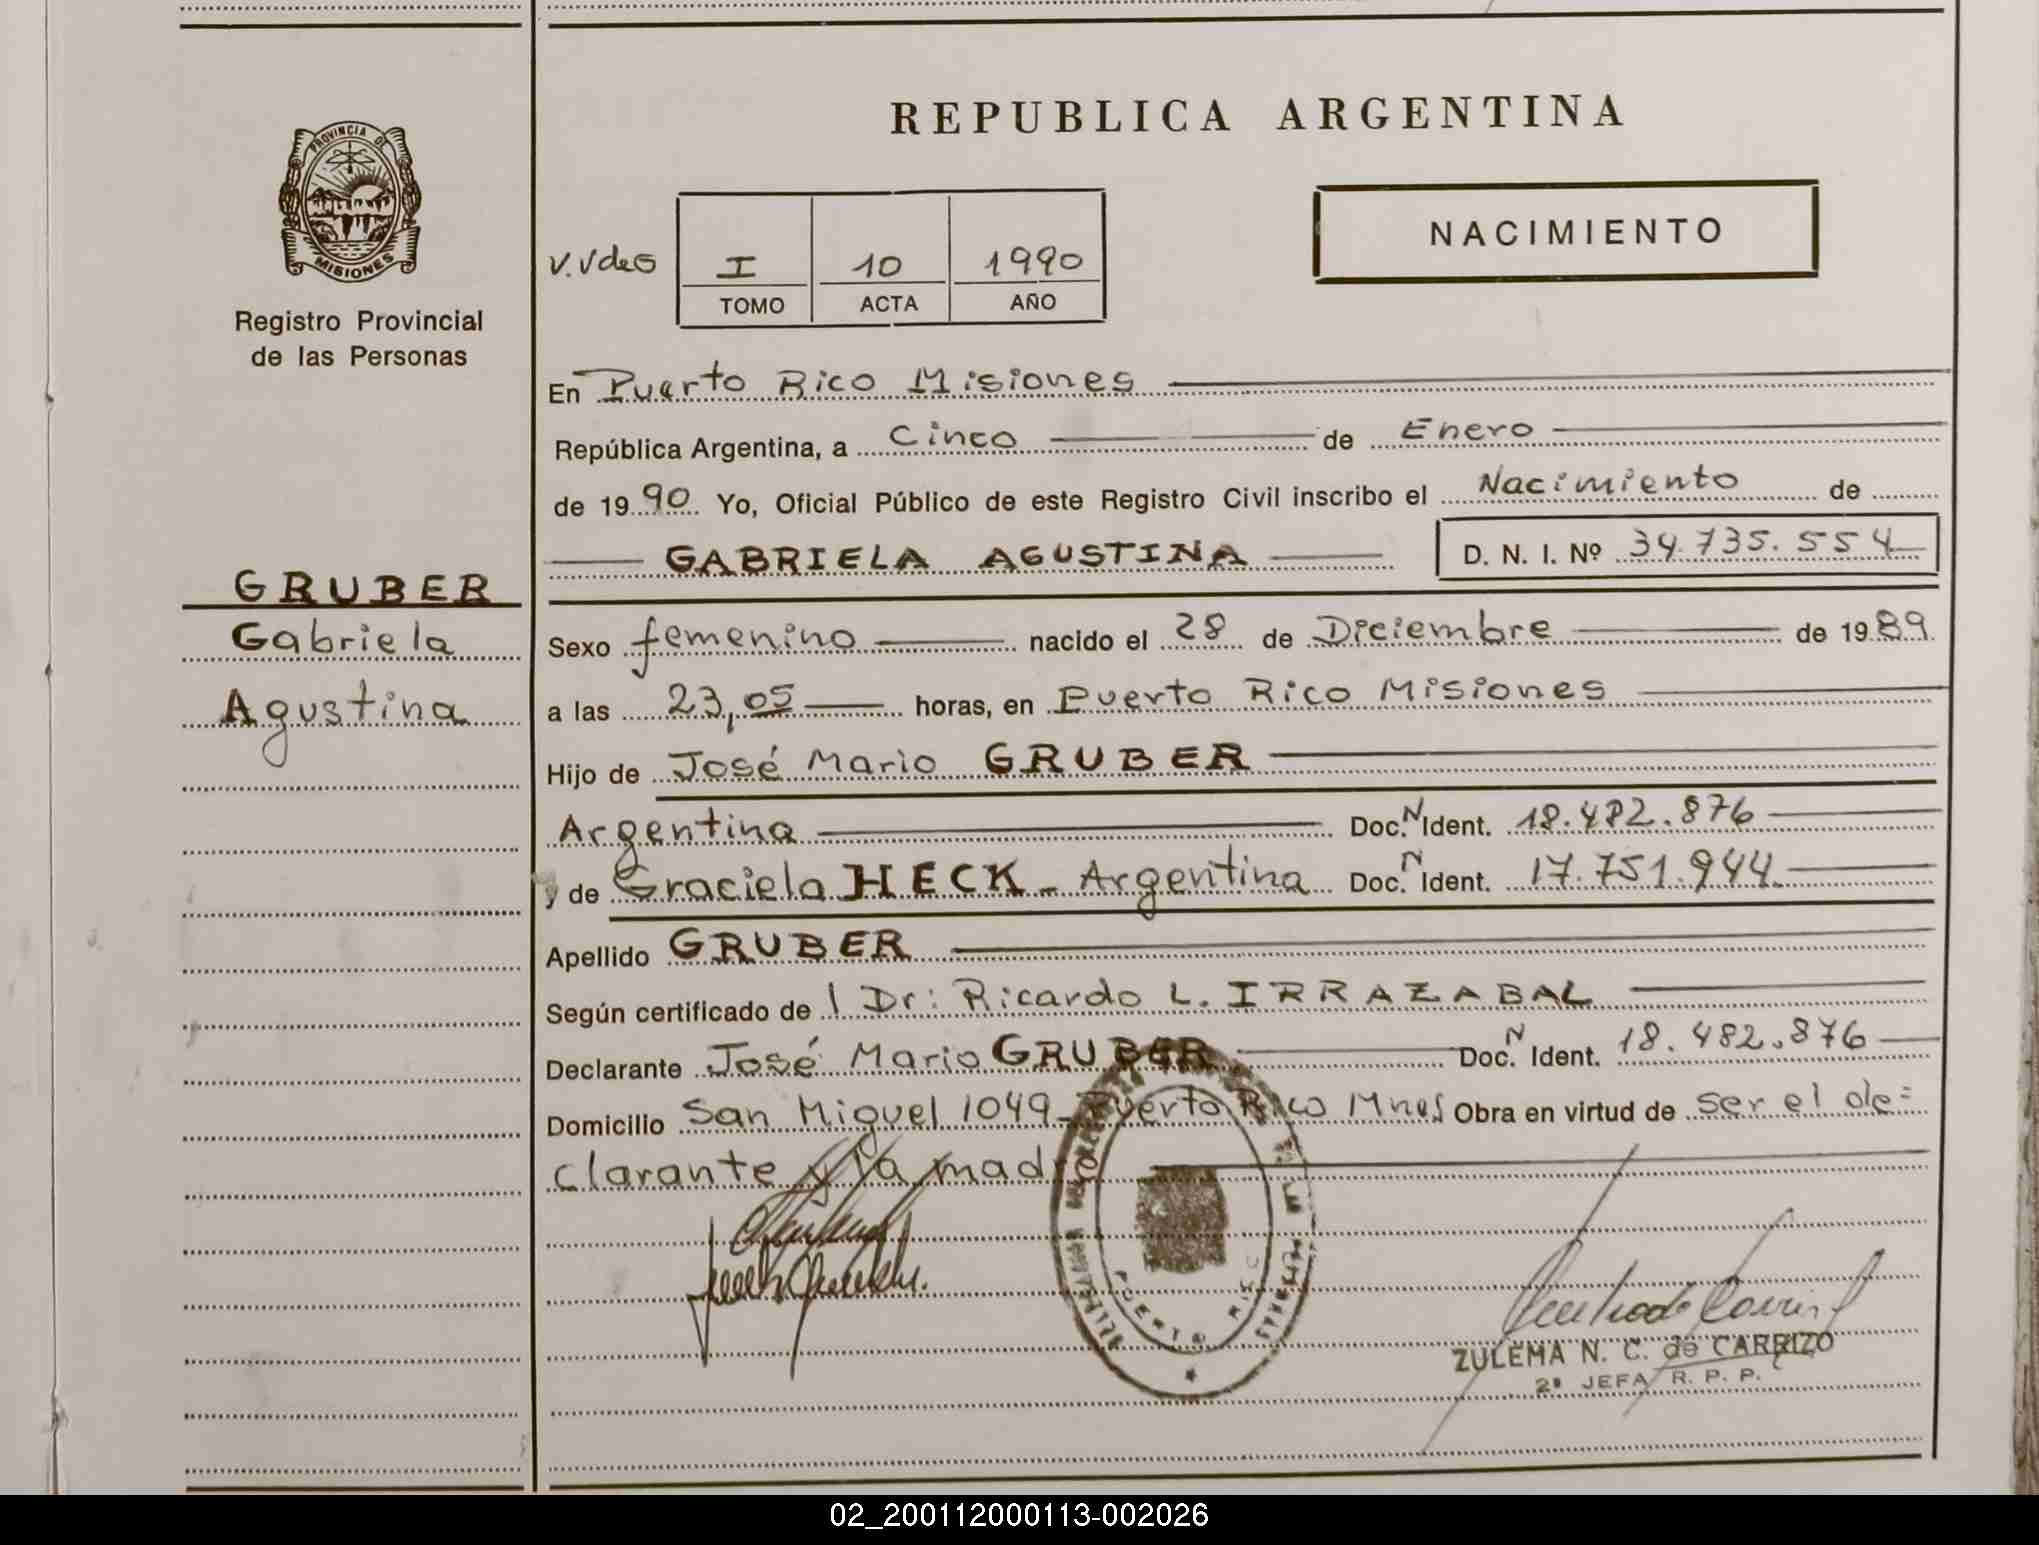 REPUBLICA ARGENTINA
PROVINCIA DE
MISIONES
Registro Provincial
de las Personas
NACIMIENTO
V.VdeG
I 10 1990
TOMO ACTA AÑO
En Puerto Rico Misiones
República Argentina, a Cinco de Enero
de 1990 Yo, Oficial Público de este Registro Civil inscribo el Nacimiento de
GABRIELA AGUSTINA D. N. I. Nº 34.735.554
GRUBER
Gabriela
Agustina
Sexo femenino nacido el 28 de Diciembre de 1989
a las 23,05 horas, en Puerto Rico Misiones
Hijo de José Mario GRUBER
Argentina Doc. N Ident. 18.482.876
y de Graciela HECK - Argentina Doc. N Ident. 17.751.944
Apellido GRUBER
Según certificado de l Dr: Ricardo L. IRRAZABAL
Declarante José Mario GRUBER Doc. N Ident. 18.482.876
Domicilio San Miguel 1049 - Puerto Rico Mnes Obra en virtud de ser el de=
clarante y la madre
PUERTO RICO
ZULEMA N. C. de CARRIZO
2ª JEFA R. P. P.
02_200112000113-002026